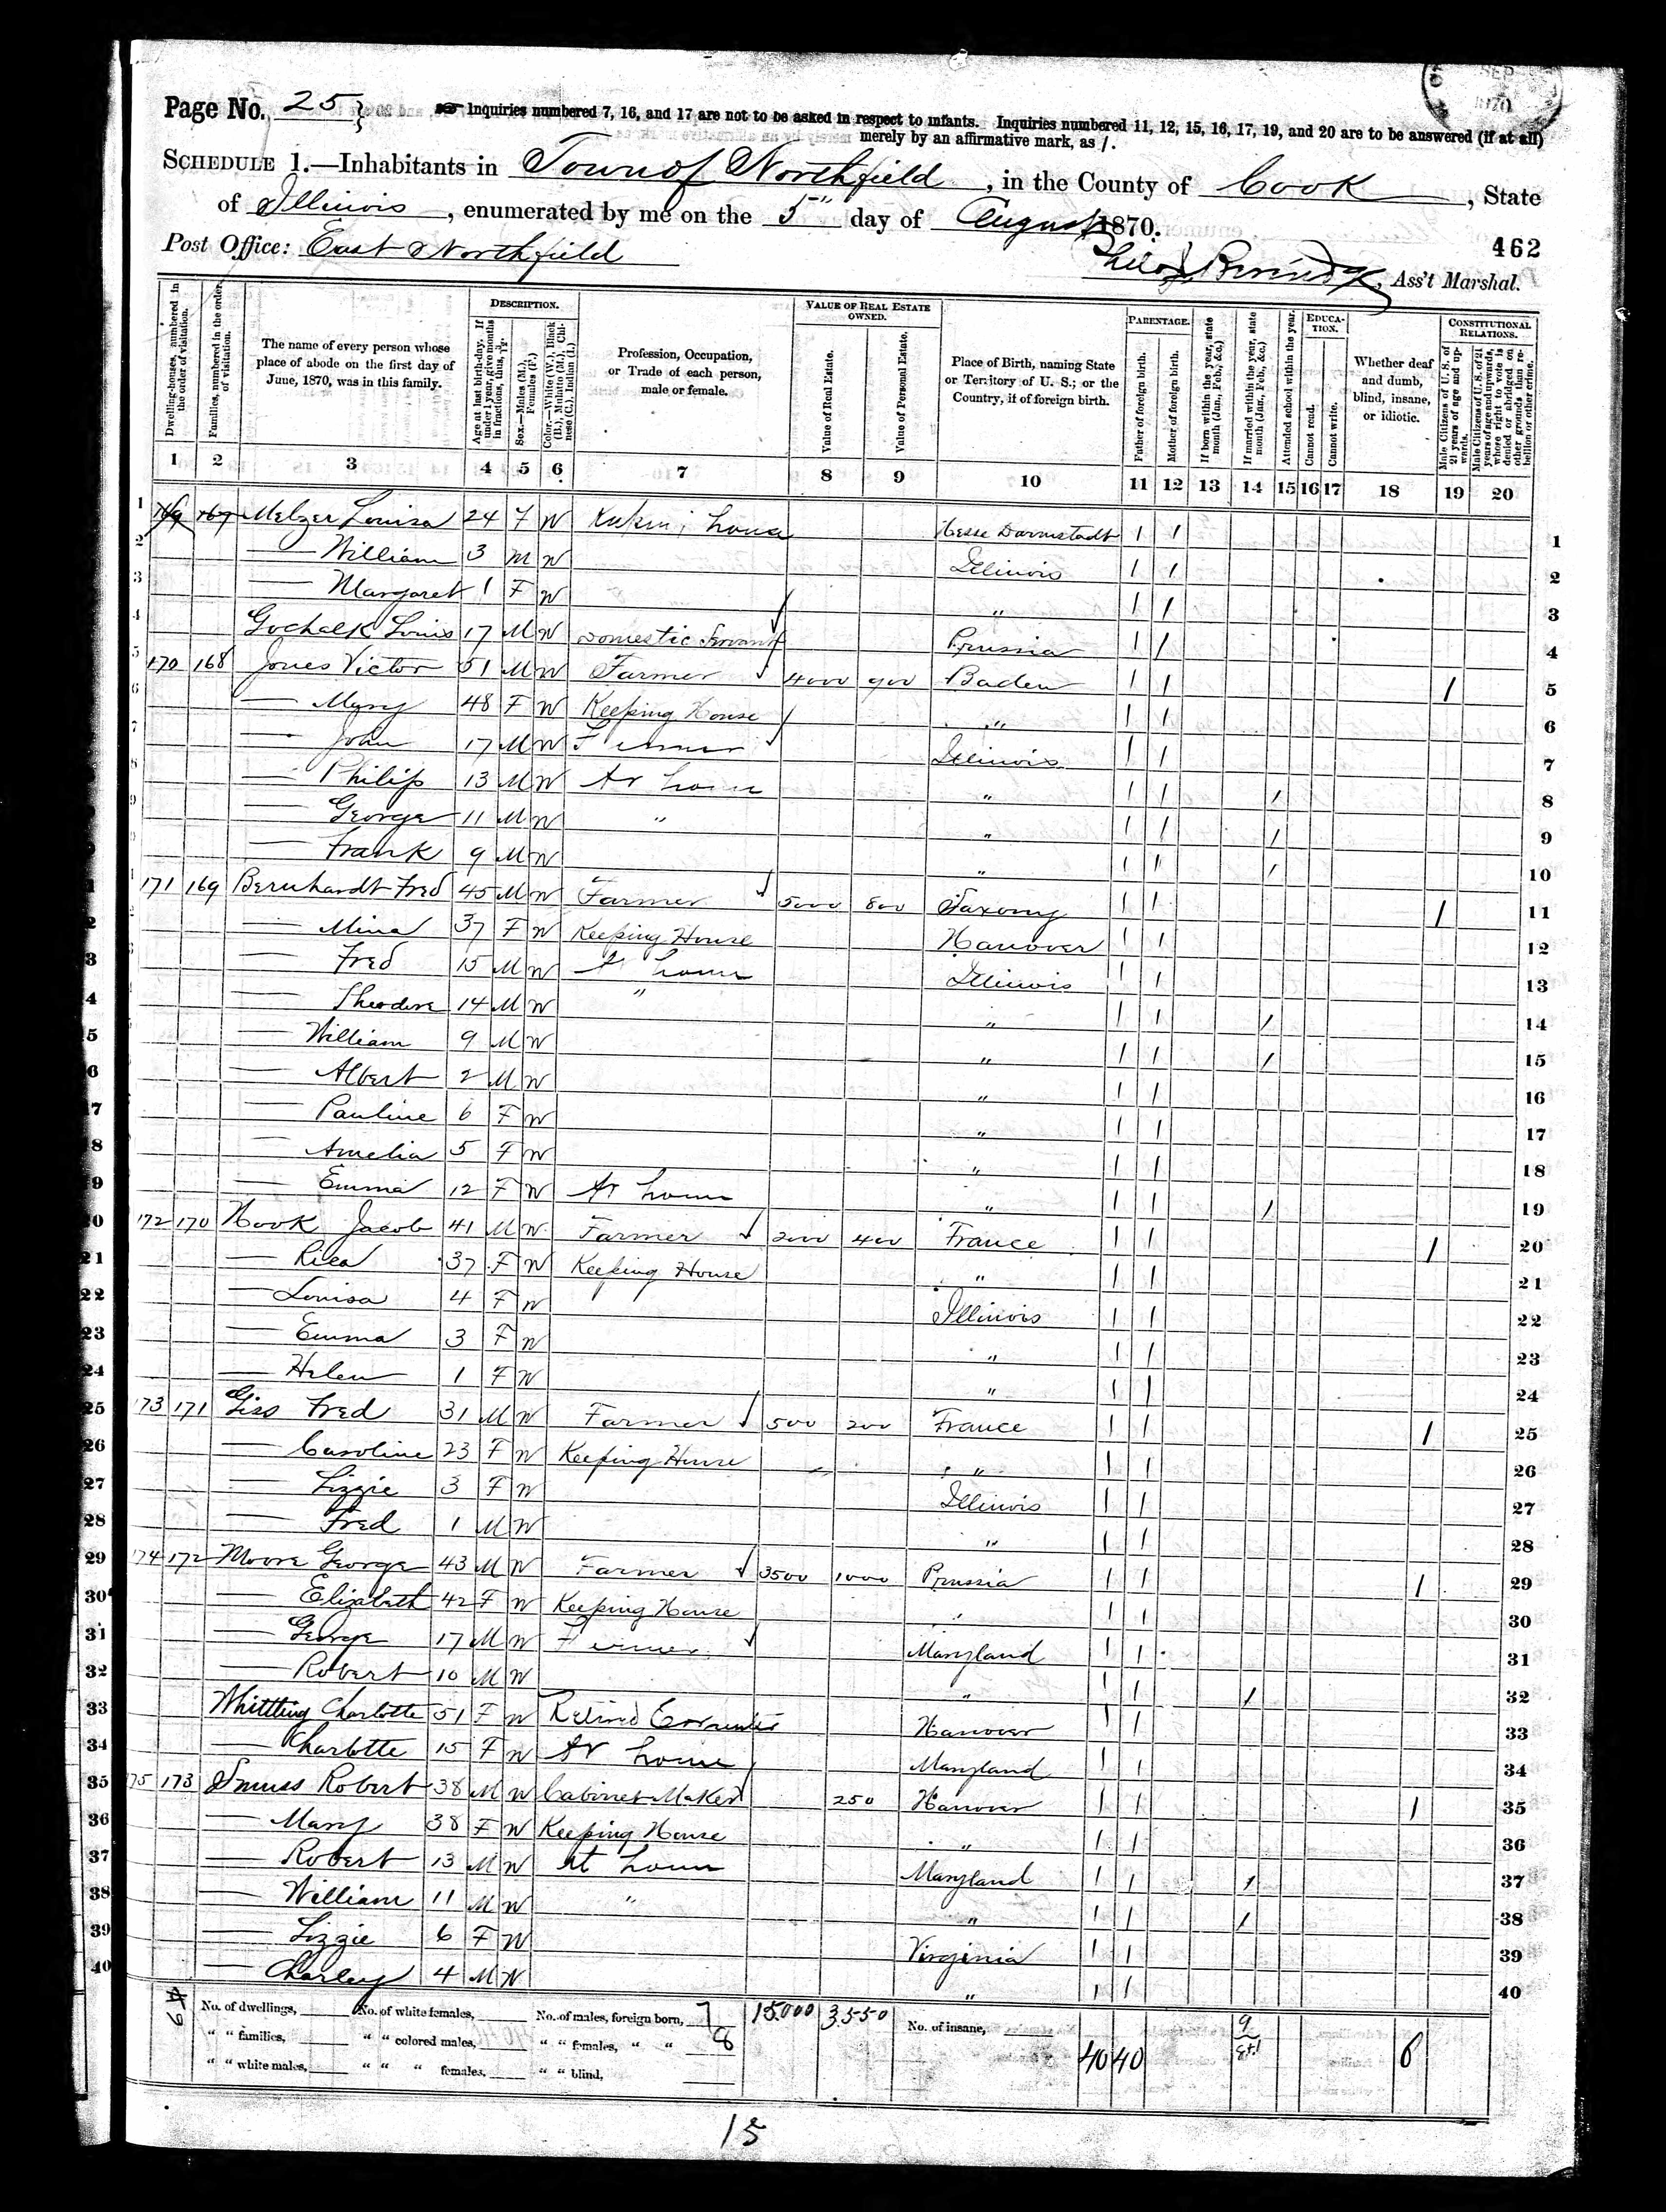 Page No. 25 } Inquiries numbered 7, 16, and 17 are not to be asked in respect to infants. Inquiries numbered 11, 12, 15, 16, 17, 19, and 20 are to be answered (if at all)
merely by an affirmative mark, as /.
SCHEDULE 1.—Inhabitants in Town of Northfield, in the County of Cook, State
of Illinois, enumerated by me on the 5" day of August 1870.
Post Office: East Northfield
462
Ass't Marshal.
SEP 1870
Dwelling-houses, numbered in the order of visitation.
Families, numbered in the order of visitation.
The name of every person whose place of abode on the first day of June, 1870, was in this family.
DESCRIPTION.
Age at last birth-day. If under 1 year, give months in fractions, thus, 3/12.
Sex.—Males (M.), Females (F.)
Color.—White (W.), Black (B.), Mulatto (M.), Chinese (C.), Indian (I.)
Profession, Occupation, or Trade of each person, male or female.
VALUE OF REAL ESTATE OWNED.
Value of Real Estate.
Value of Personal Estate.
Place of Birth, naming State or Territory of U. S.; or the Country, if of foreign birth.
PARENTAGE.
Father of foreign birth.
Mother of foreign birth.
If born within the year, state month (Jan., Feb., &c.)
If married within the year, state month (Jan., Feb., &c.)
Attended school within the year.
EDUCATION.
Cannot read.
Cannot write.
Whether deaf and dumb, blind, insane, or idiotic.
CONSTITUTIONAL RELATIONS.
Male Citizens of U. S. of 21 years of age and upwards.
Male Citizens of U. S. of 21 years of age and upwards, whose right to vote is denied or abridged on other grounds than rebellion or other crime.
1 2 3 4 5 6 7 8 9 10 11 12 13 14 15 16 17 18 19 20
1 169 167 Melzer Louisa 24 F W house Hesse Darmstadt / / 1
2 — William 3 M W Illinois / / 2
3 — Margaret 1 F W " / / 3
4 Gochalk Louis 17 M W Domestic Servant Prussia / / 4
5 170 168 Jones Victor 51 M W Farmer 4000 900 Baden / / / 5
6 — Mary 48 F W Keeping House " / / 6
7 — John 17 M W Farmer Illinois / / 7
8 — Philip 13 M W At home " / / / 8
9 — George 11 M W " " / / / 9
— Frank 9 M W " / / / 10
1 171 169 Bernhardt Fred 45 M W Farmer 5000 800 Saxony / / / 11
2 — Mina 37 F W Keeping House Hanover / / 12
3 — Fred 15 M W At home Illinois / / 13
4 — Theodore 14 M W " " / / / 14
5 — William 9 M W " / / / 15
6 — Albert 2 M W " / / 16
7 — Pauline 6 F W " / / 17
8 — Amelia 5 F W " / / 18
9 — Emma 12 F W At home " / / / 19
20 172 170 Hook Jacob 41 M W Farmer 2000 400 France / / / 20
21 — Rica 37 F W Keeping House " / / 21
22 — Louisa 4 F W Illinois / / 22
23 — Emma 3 F W " / / 23
24 — Helen 1 F W " / / 24
25 173 171 Giss Fred 31 M W Farmer 500 200 France / / / 25
26 — Caroline 23 F W Keeping House " / / 26
27 — Lizzie 3 F W Illinois / / 27
28 — Fred 1 M W " / / 28
29 174 172 Moore George 43 M W Farmer 3500 1000 Prussia / / / 29
30 — Elizabeth 42 F W Keeping House " / / 30
31 — George 17 M W Farmer Maryland / / 31
32 — Robert 10 M W " / / / 32
33 Whittling Charlotte 51 F W Retired Hanover / / 33
34 — Charlotte 15 F W At home Maryland / / 34
35 175 173 Smuss Robert 38 M W Cabinet Maker 250 Hanover / / / 35
36 — Mary 38 F W Keeping House " / / 36
37 — Robert 13 M W At home Maryland / / / 37
38 — William 11 M W " " / / / 38
39 — Lizzie 6 F W Virginia / / 39
40 — Charley 4 M W " / / 40
No. of dwellings, No. of white females, No. of males, foreign born, 7 15000 3550 No. of insane, 40 40 9 6
" " families, " " colored males, " " females, " " 8
" " white males, " " " females, " " blind,
15